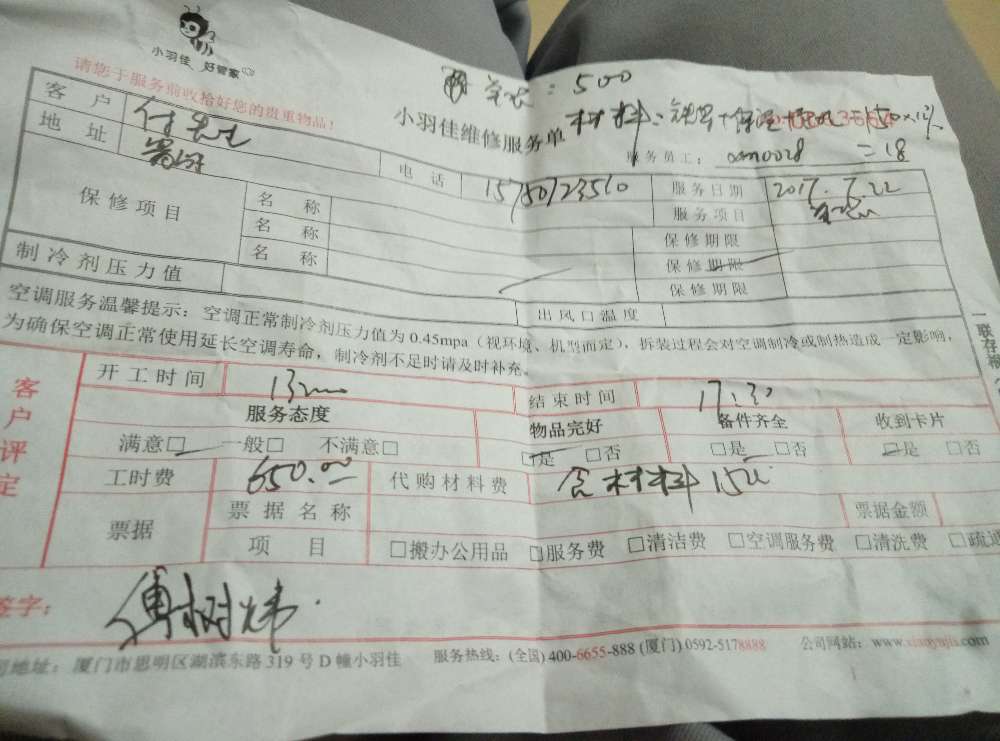 小羽佳 好管家
请您于服务前收拾好您的贵重物品！
安装：500
小羽佳维修服务单
材料：
服务员工： xm0028 =18
客户
地址
电话 15780723510
服务日期 2017.7.22
服务项目
保修项目
名称
名称
名称
保修期限
保修期限
保修期限
制冷剂压力值
出风口温度
空调服务温馨提示：空调正常制冷剂压力值为 0.45mpa（视环境、机型而定），拆装过程会对空调制冷或制热造成一定影响，
为确保空调正常使用延长空调寿命，制冷剂不足时请及时补充。
客户评定
开工时间
结束时间 17:30
服务态度
物品完好
备件齐全
收到卡片
满意□ 一般□ 不满意□
□是 □否
□是 □否
□是 □否
工时费 650.00
代购材料费 含材料150
票据
票据名称
票据金额
项目
□搬办公用品 □服务费 □清洁费 □空调服务费 □清洗费 □疏通
签字： 傅树炜
司地址：厦门市思明区湖滨东路 319 号 D 幢小羽佳
服务热线：(全国) 400-6655-888 (厦门) 0592-5178888
公司网站：www.xiaoyujia.com